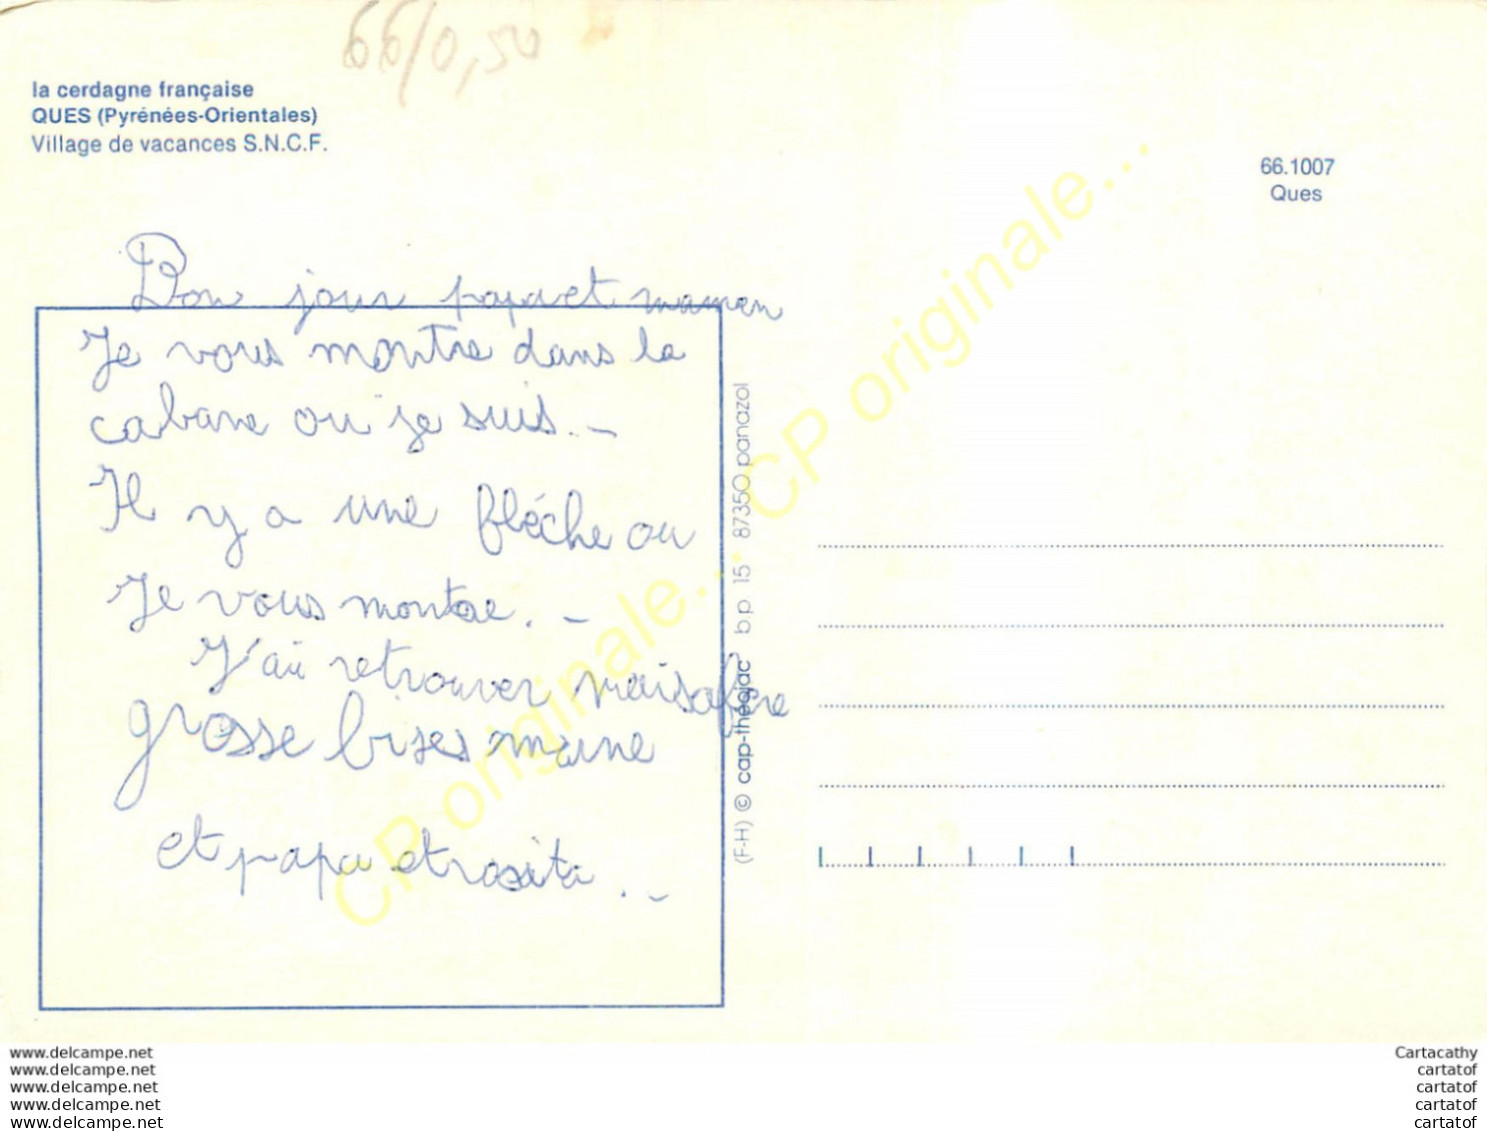 66/0,50
la cerdagne française
QUES (Pyrénées-Orientales)
Village de vacances S.N.C.F.
66.1007
Ques
Bon jour papa et mamen
Je vous montre dans la
cabane ou je suis. –
Il y a une fléche ou
Je vous montre. –
J'ai retrouver
grosse bises
et papa et rosita. –
(F-H) © cap-théojac b.p 15 87350 panazol
CP originale... CP originale...
www.delcampe.net
www.delcampe.net
www.delcampe.net
www.delcampe.net
www.delcampe.net
Cartacathy
cartatof
cartatof
cartatof
cartatof